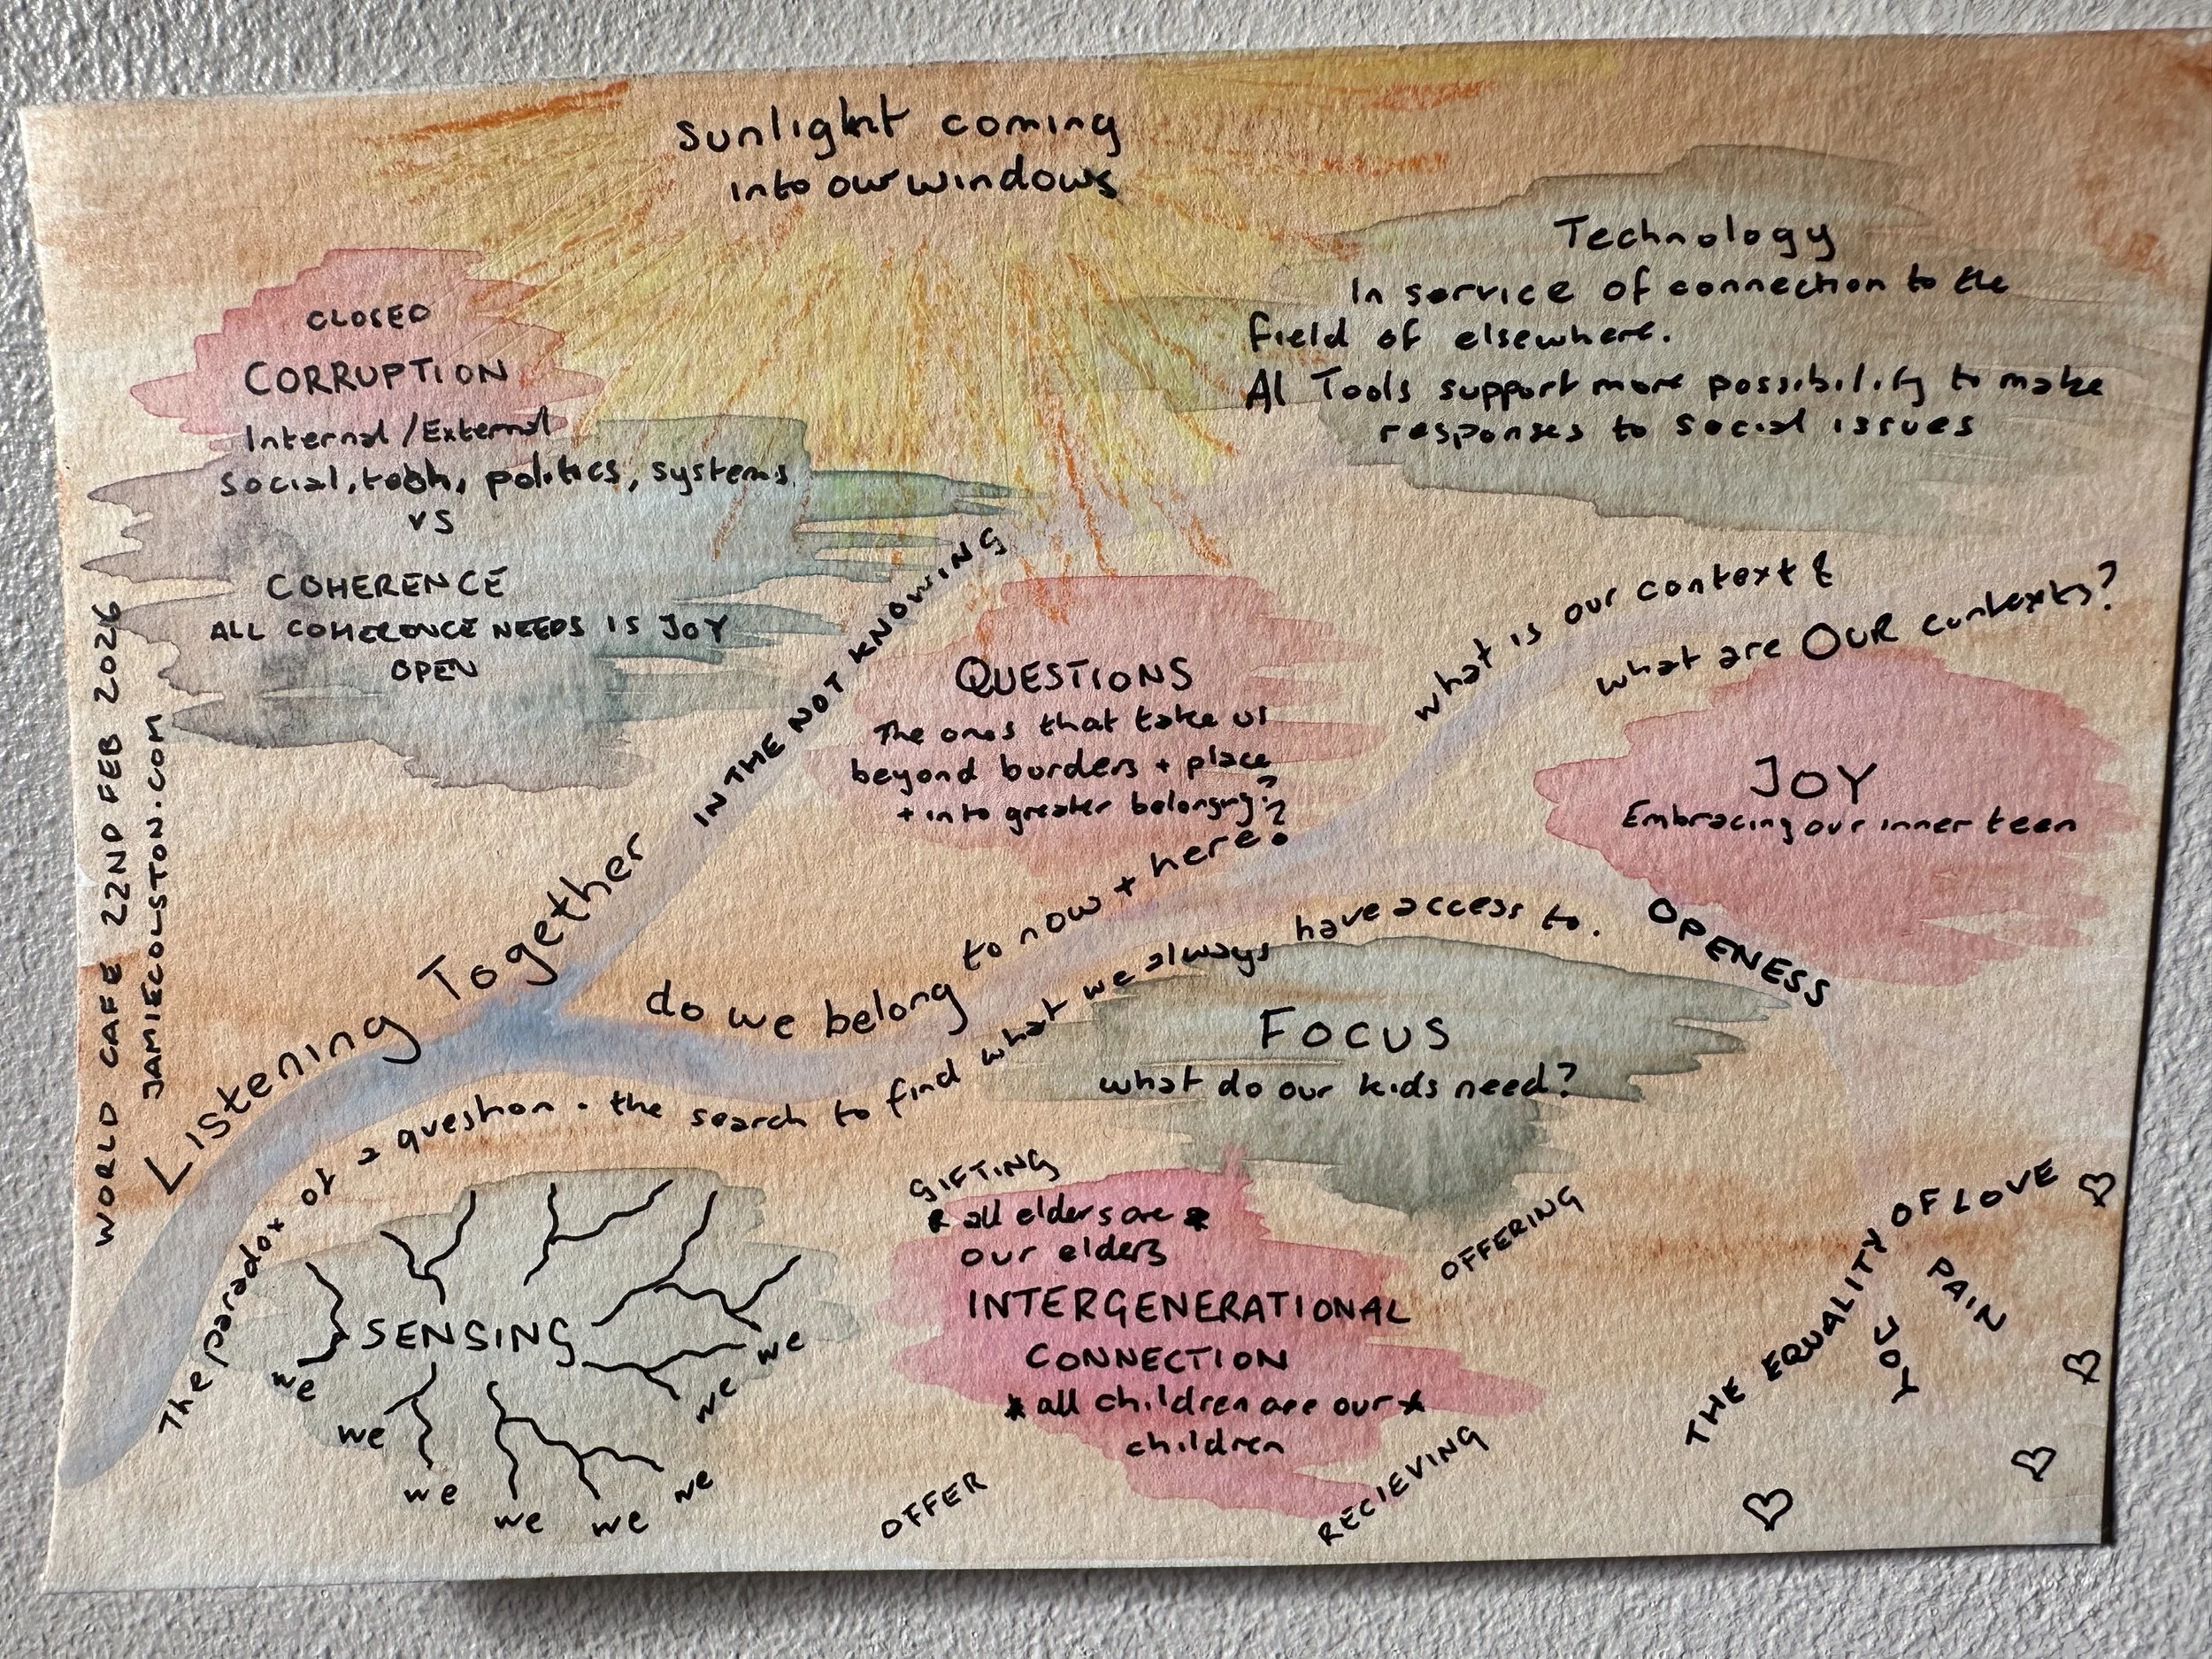 sunlight coming
into our windows
Technology
In service of connection to the
field of elsewhere.
AI Tools support more possibility to make
responses to social issues
CLOSED
CORRUPTION
Internal/External
Social, tech, politics, systems
vs
COHERENCE
ALL COHERENCE NEEDS IS JOY
OPEN
WORLD CAFE 22ND FEB 2026
JAMIECOLSTON.COM
Listening Together
IN THE NOT KNOWING
QUESTIONS
The ones that take us
beyond borders + place
+ into greater belonging?
what is our context &
what are OUR contexts?
JOY
Embracing our inner teen
do we belong to now + here?
The paradox of a question. the search to find what we always have access to.
OPENESS
FOCUS
what do our kids need?
SENSING
we
we
we
we
we
we
we
we
GIFTING
* all elders are *
our elders
INTERGENERATIONAL
CONNECTION
* all children are our *
children
OFFERING
OFFER
RECIEVING
THE EQUALITY OF LOVE
PAIN
JOY